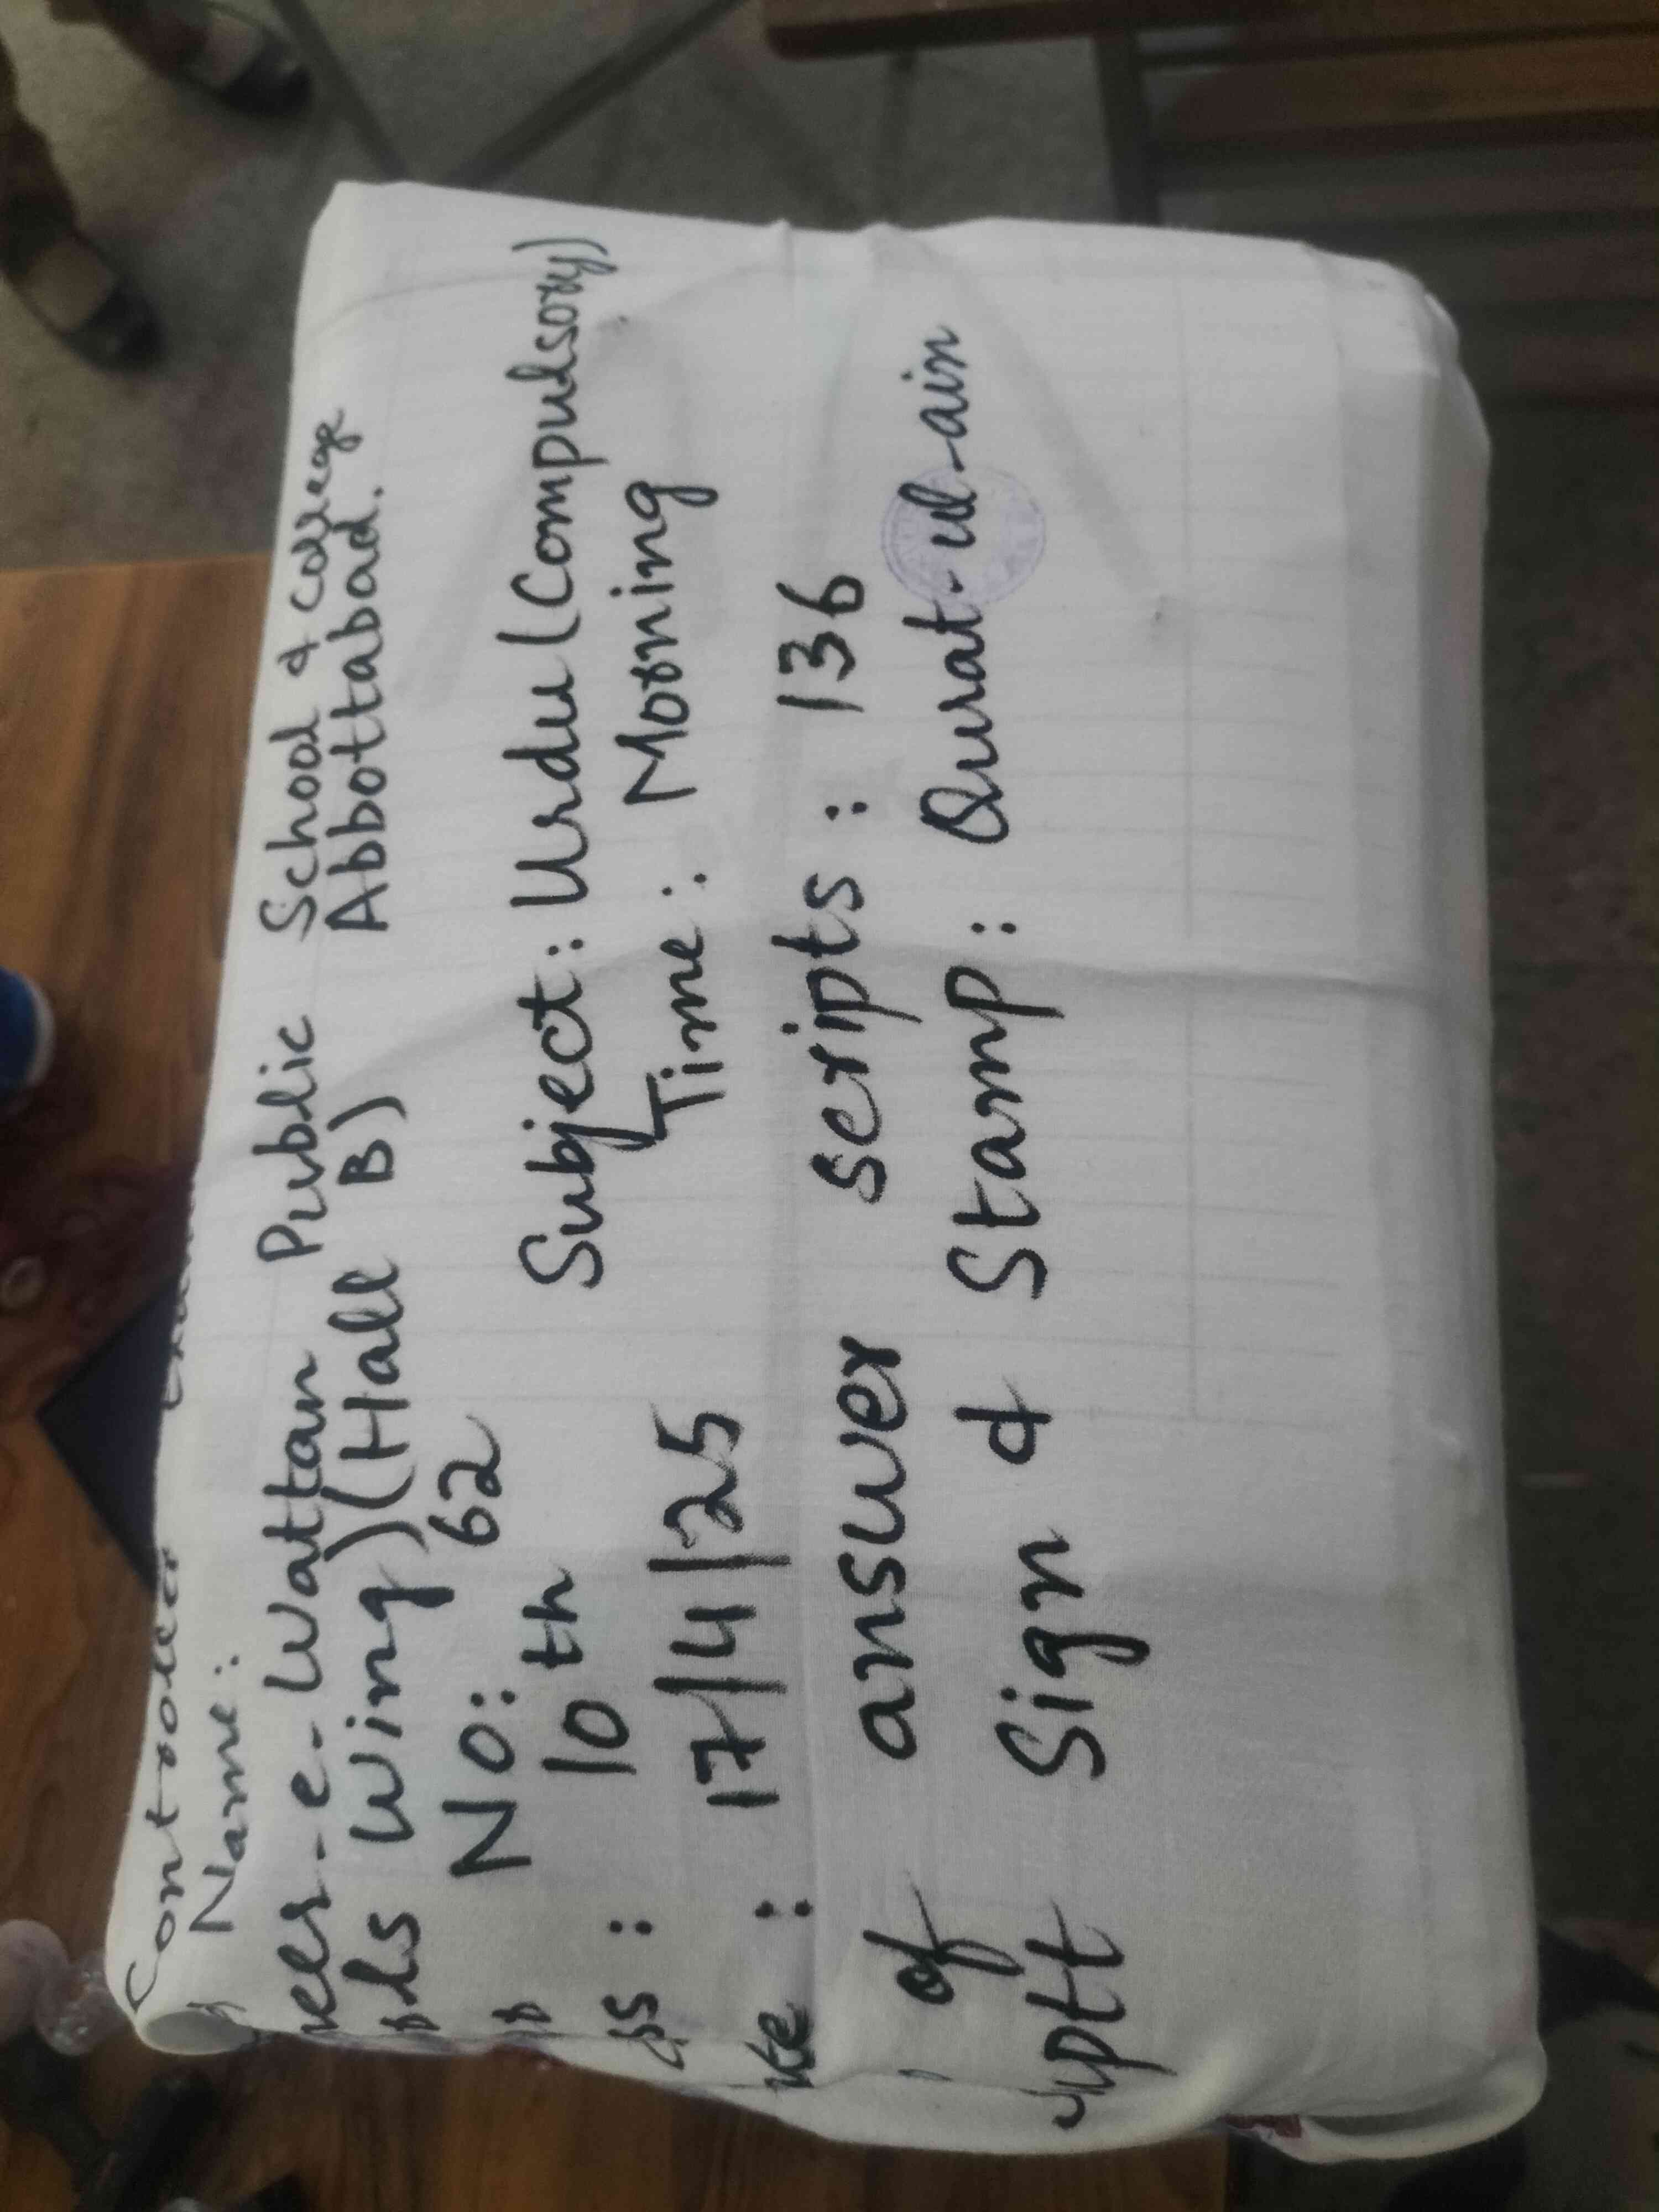 Controller
Name:
e-Wattan Public School & College
Wing) (Hall B) Abbottabad.
No: 62
10th Subject: Urdu (Compulsory)
: 17/4/25 Time: Morning
of answer scripts: 136
Suptt Sign & Stamp: Qurat-ul-ain